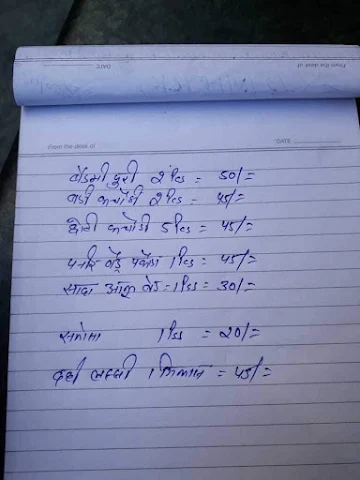 From the desk of
DATE
From the desk of
DATE
बेडमी पुरी 2 Pics = 50/=
बडी कचोडी 2 Pics = 45/=
छोटी कचोडी 5 Pics = 45/=
पनीर ब्रेड पकोडा 1 Pics = 45/=
सादा आलू ब्रेड = 1 Pics = 30/=
समोसा 1 Pics = 20/=
दही लस्सी 1 गिलास = 45/=